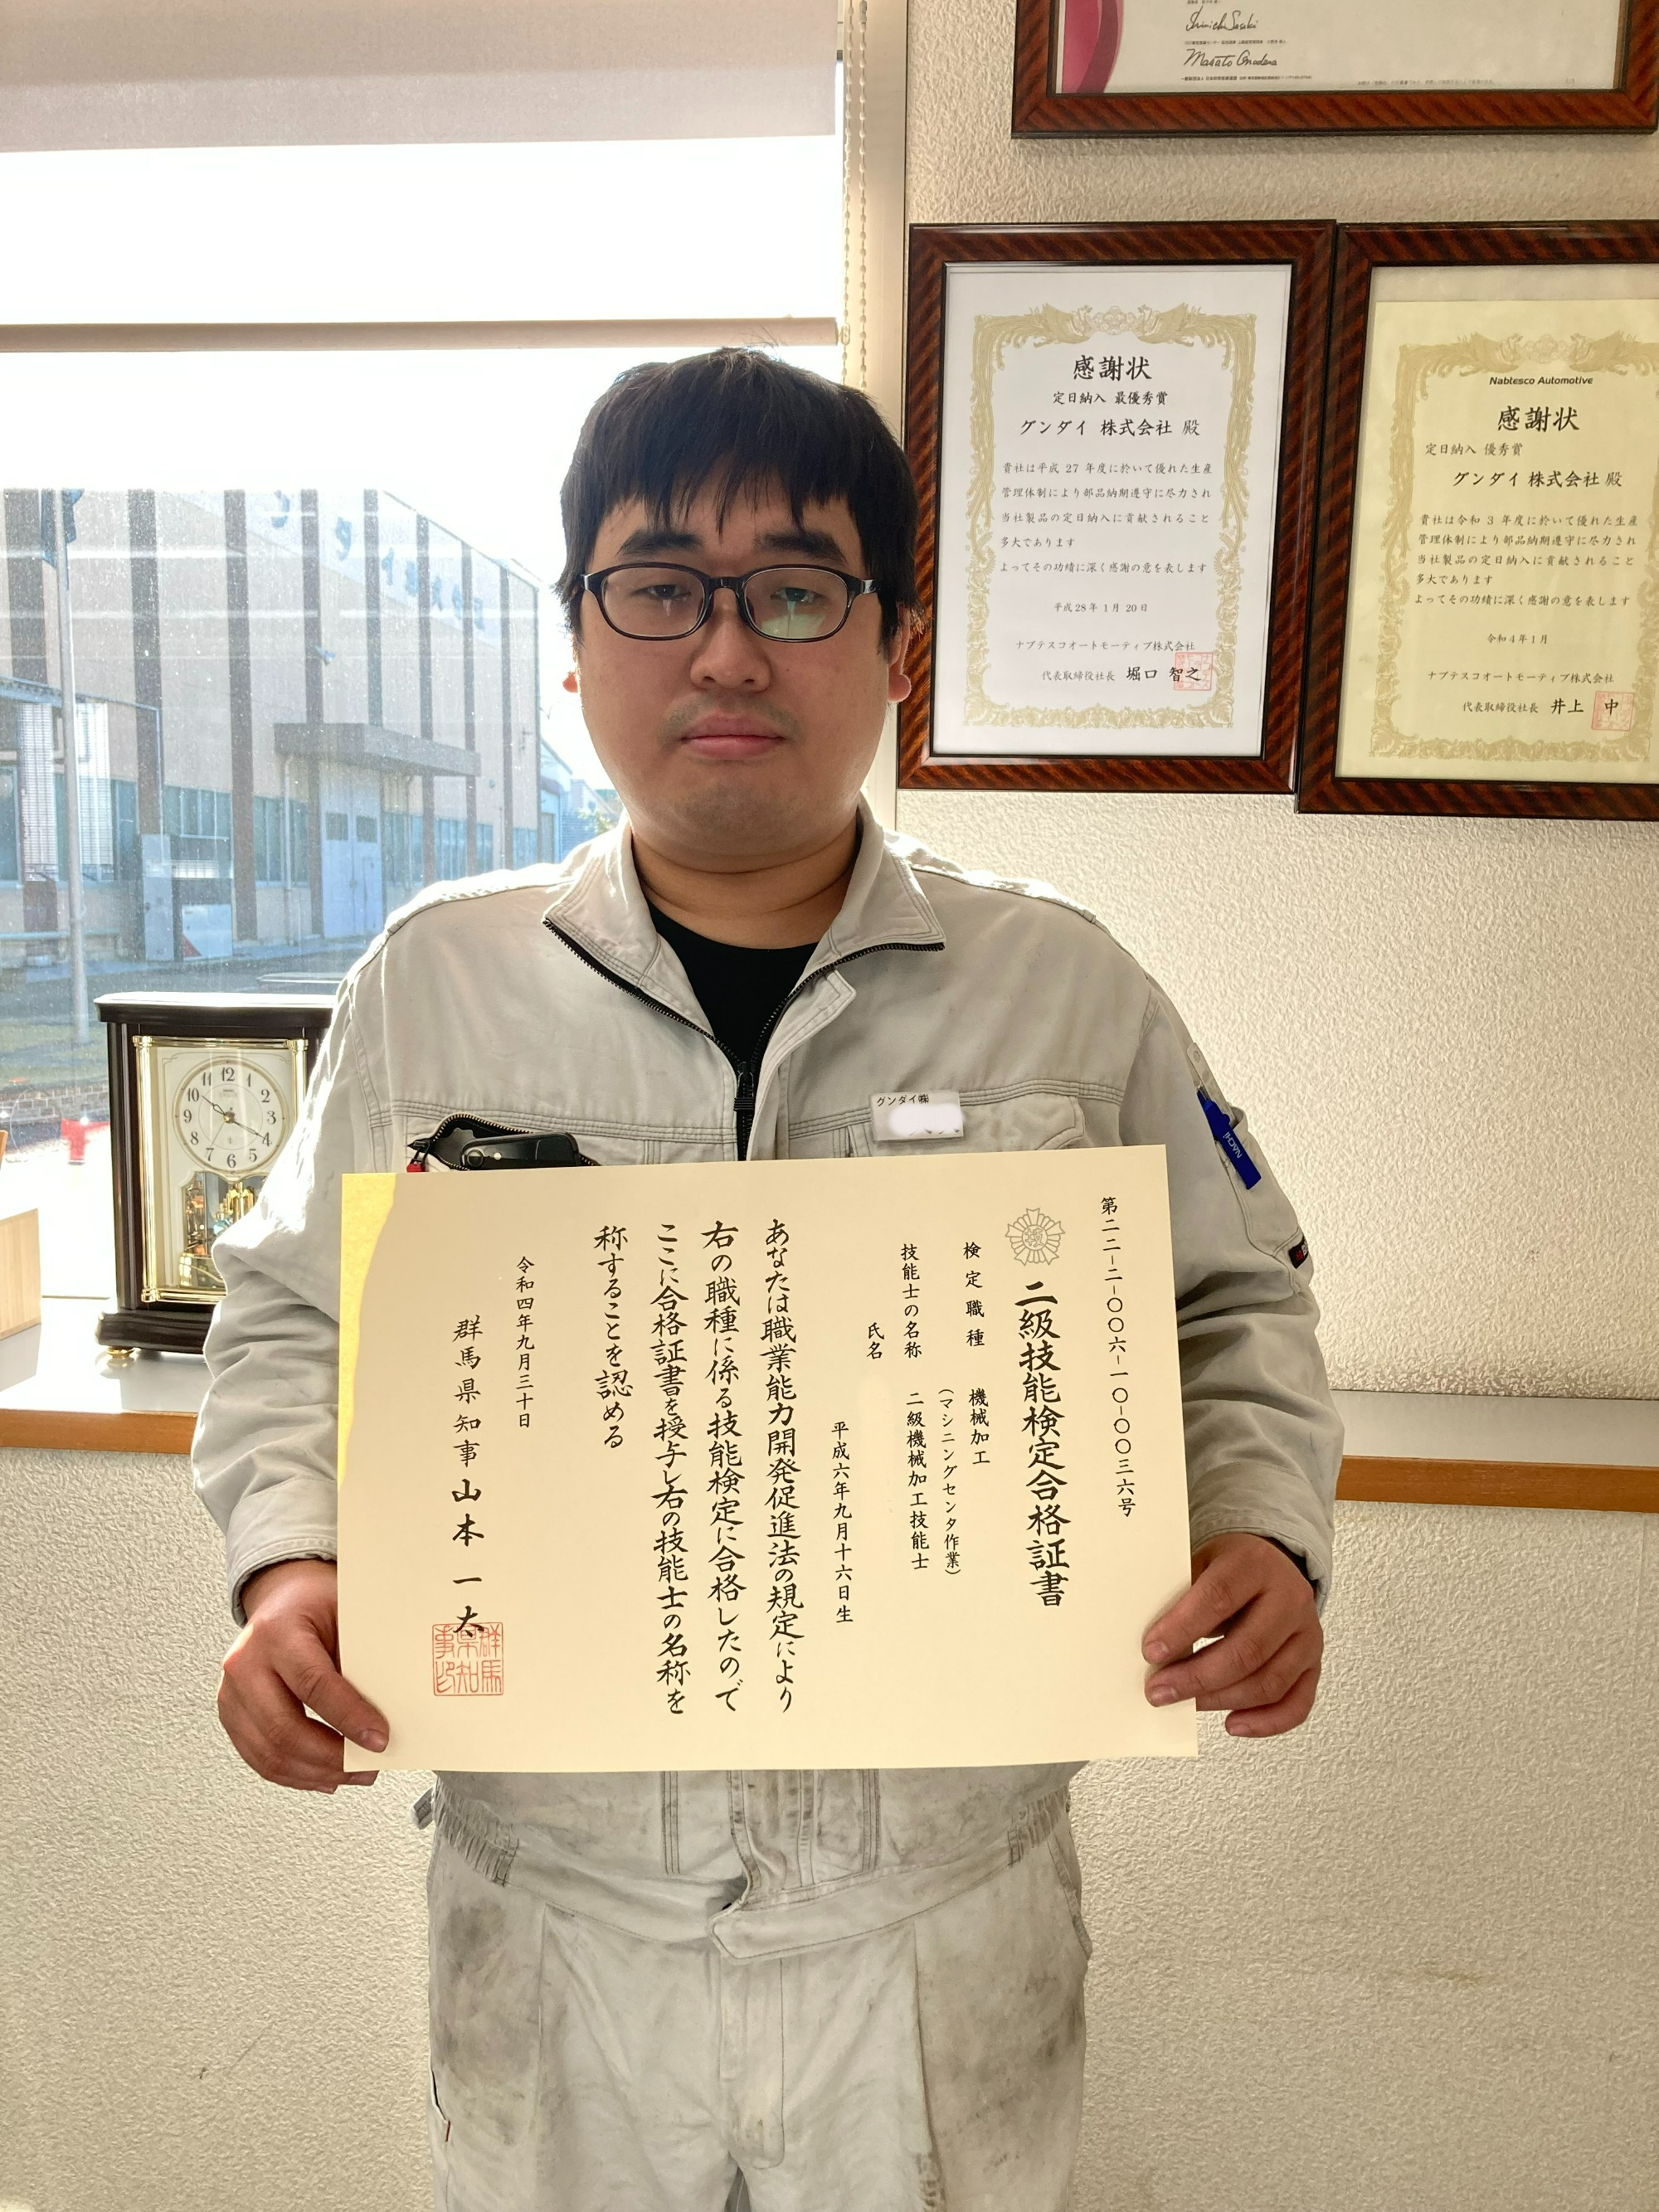 Shinichi Sasaki
Masato Onodera
感謝状
定日納入 最優秀賞
グンダイ 株式会社 殿
貴社は平成 27 年度に於いて優れた生産
管理体制により部品納期遵守に尽力され
当社製品の定日納入に貢献されること
多大であります
よってその功績に深く感謝の意を表します
平成28年 1月 20日
ナブテスコオートモーティブ株式会社
代表取締役社長 堀口 智之
Nabtesco Automotive
感謝状
定日納入 優秀賞
グンダイ 株式会社 殿
貴社は令和 3 年度に於いて優れた生産
管理体制により部品納期遵守に尽力され
当社製品の定日納入に貢献されること
多大であります
よってその功績に深く感謝の意を表します
令和4年1月
ナブテスコオートモーティブ株式会社
代表取締役社長 井上 中
グンダイ㈱
NACHi
12
1
2
3
4
5
6
7
8
9
10
11
第二二-二-〇〇六-一〇-〇〇三六号
二級技能検定合格証書
検定職種 機械加工
(マシニングセンタ作業)
技能士の名称 二級機械加工技能士
氏名
平成六年九月十六日生
あなたは職業能力開発促進法の規定により
右の職種に係る技能検定に合格したので
ここに合格証書を授与し右の技能士の名称を
称することを認める
令和四年九月三十日
群馬県知事 山本 一太
群馬県知事印